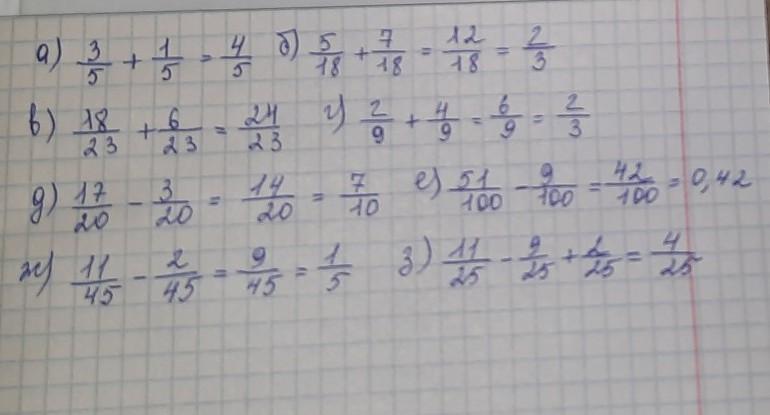 а) 3/5 + 1/5 = 4/5 б) 5/18 + 7/18 = 12/18 = 2/3
в) 18/23 + 6/23 = 24/23 г) 2/9 + 4/9 = 6/9 = 2/3
д) 17/20 - 3/20 = 14/20 = 7/10 е) 51/100 - 9/100 = 42/100 = 0,42
ж) 11/45 - 2/45 = 9/45 = 1/5 з) 11/25 - 9/25 + 2/25 = 4/25